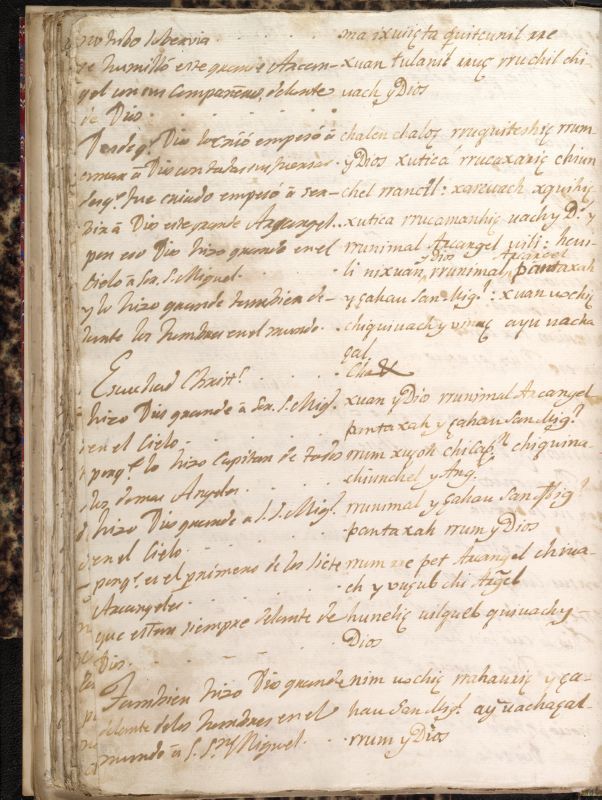 no hubo sobervia
se humilló este grande Arcan-
gel con sus Compañeros, delante
de Dios
Desde q.e Dios lo crió empesó à
amar à Dios con todas sus fuersas
desq.e fue criado empesó à ser-
vir à Dios este grande Arcangel
por eso Dios hizo grande en el
Cielo à Sr. S. Miguel
y lo hizo grande tambien de-
lante los hombres en el mundo
Escuchad Christ.s
hizo Dios grande à Sr. S. Mig.l
en el Cielo
porq.e lo hizo Capitan de todos
los demas Angeles
hizo Dios grande à S. S. Mig.l
en el Cielo
porq.e es el primero de los siete
Arcangeles
que estan siempre delante de
Dios
Tambien hizo Dios grande
delante de los hombres en el
mundo à S. S.n Miguel
ma ixuicta quitcunil rre
xuan tulanil rruc rruchil chi-
uach y Dios
chalen chalos rruquiteshic rrum
y Dios xutica rrucaxaric chiun
chel rrancil: xaruach xquihic
xutica rrucamanhic uach y D.s y
rrunimal Arcangel uili: heu-
li nixuan y Dio rrunimal Arcangel pantaxah
y cahau San Mig.l: xuan uochic
chiquiuach y uinac ayu uacha
cal
xuan y Dio rrunimal Arcangel
pantaxah y cahau San Mig.l
rrum xuyoh chi Cap.n chiquina
chiunchel y Ang.
rrunimal y cahau San Mig.l
pantaxah rrum y Dios
rrum rre pet Arcangel chiua-
ch y uucub chi Angel
hunelic uilqueb quiuach y
Dios
nim uochic rrahauric y ca-
hau San Mig.l ayu uachacal
rrum y Dios